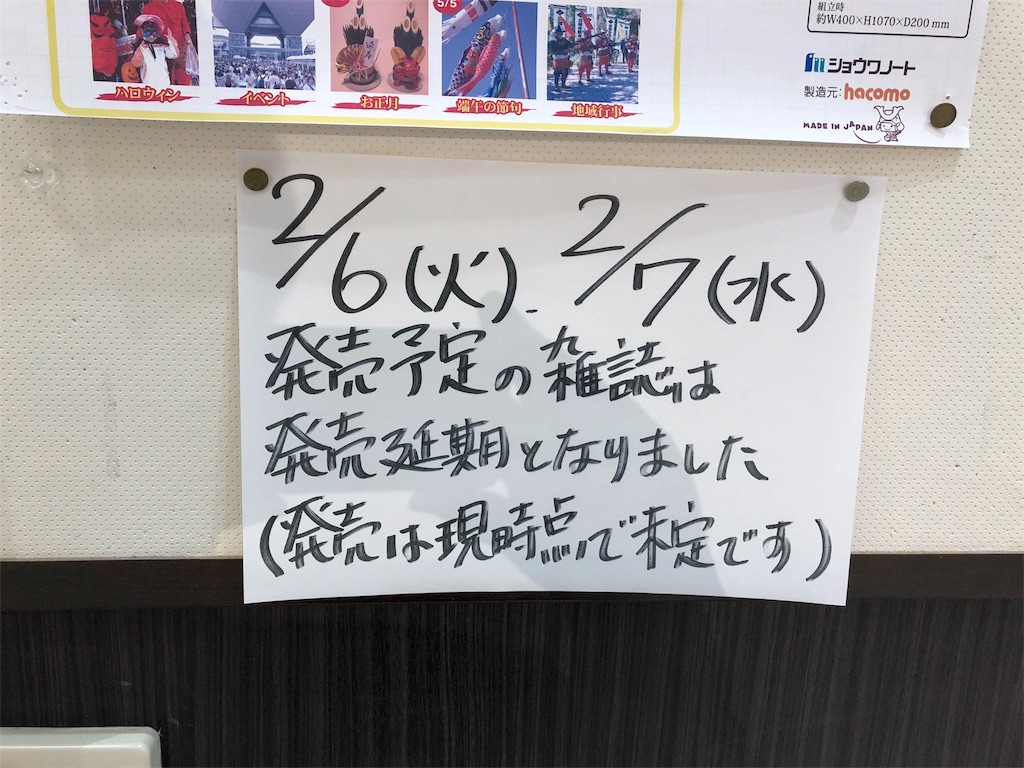 5/5
組立時
約W400×H1070×D200mm
ハロウィン
イベント
お正月
端午の節句
地域行事
ショウワノート
製造元:hacomo
MADE IN JAPAN
2/6(火). 2/7(水)
発売予定の雑誌は
発売延期となりました
(発売は現時点で未定です)